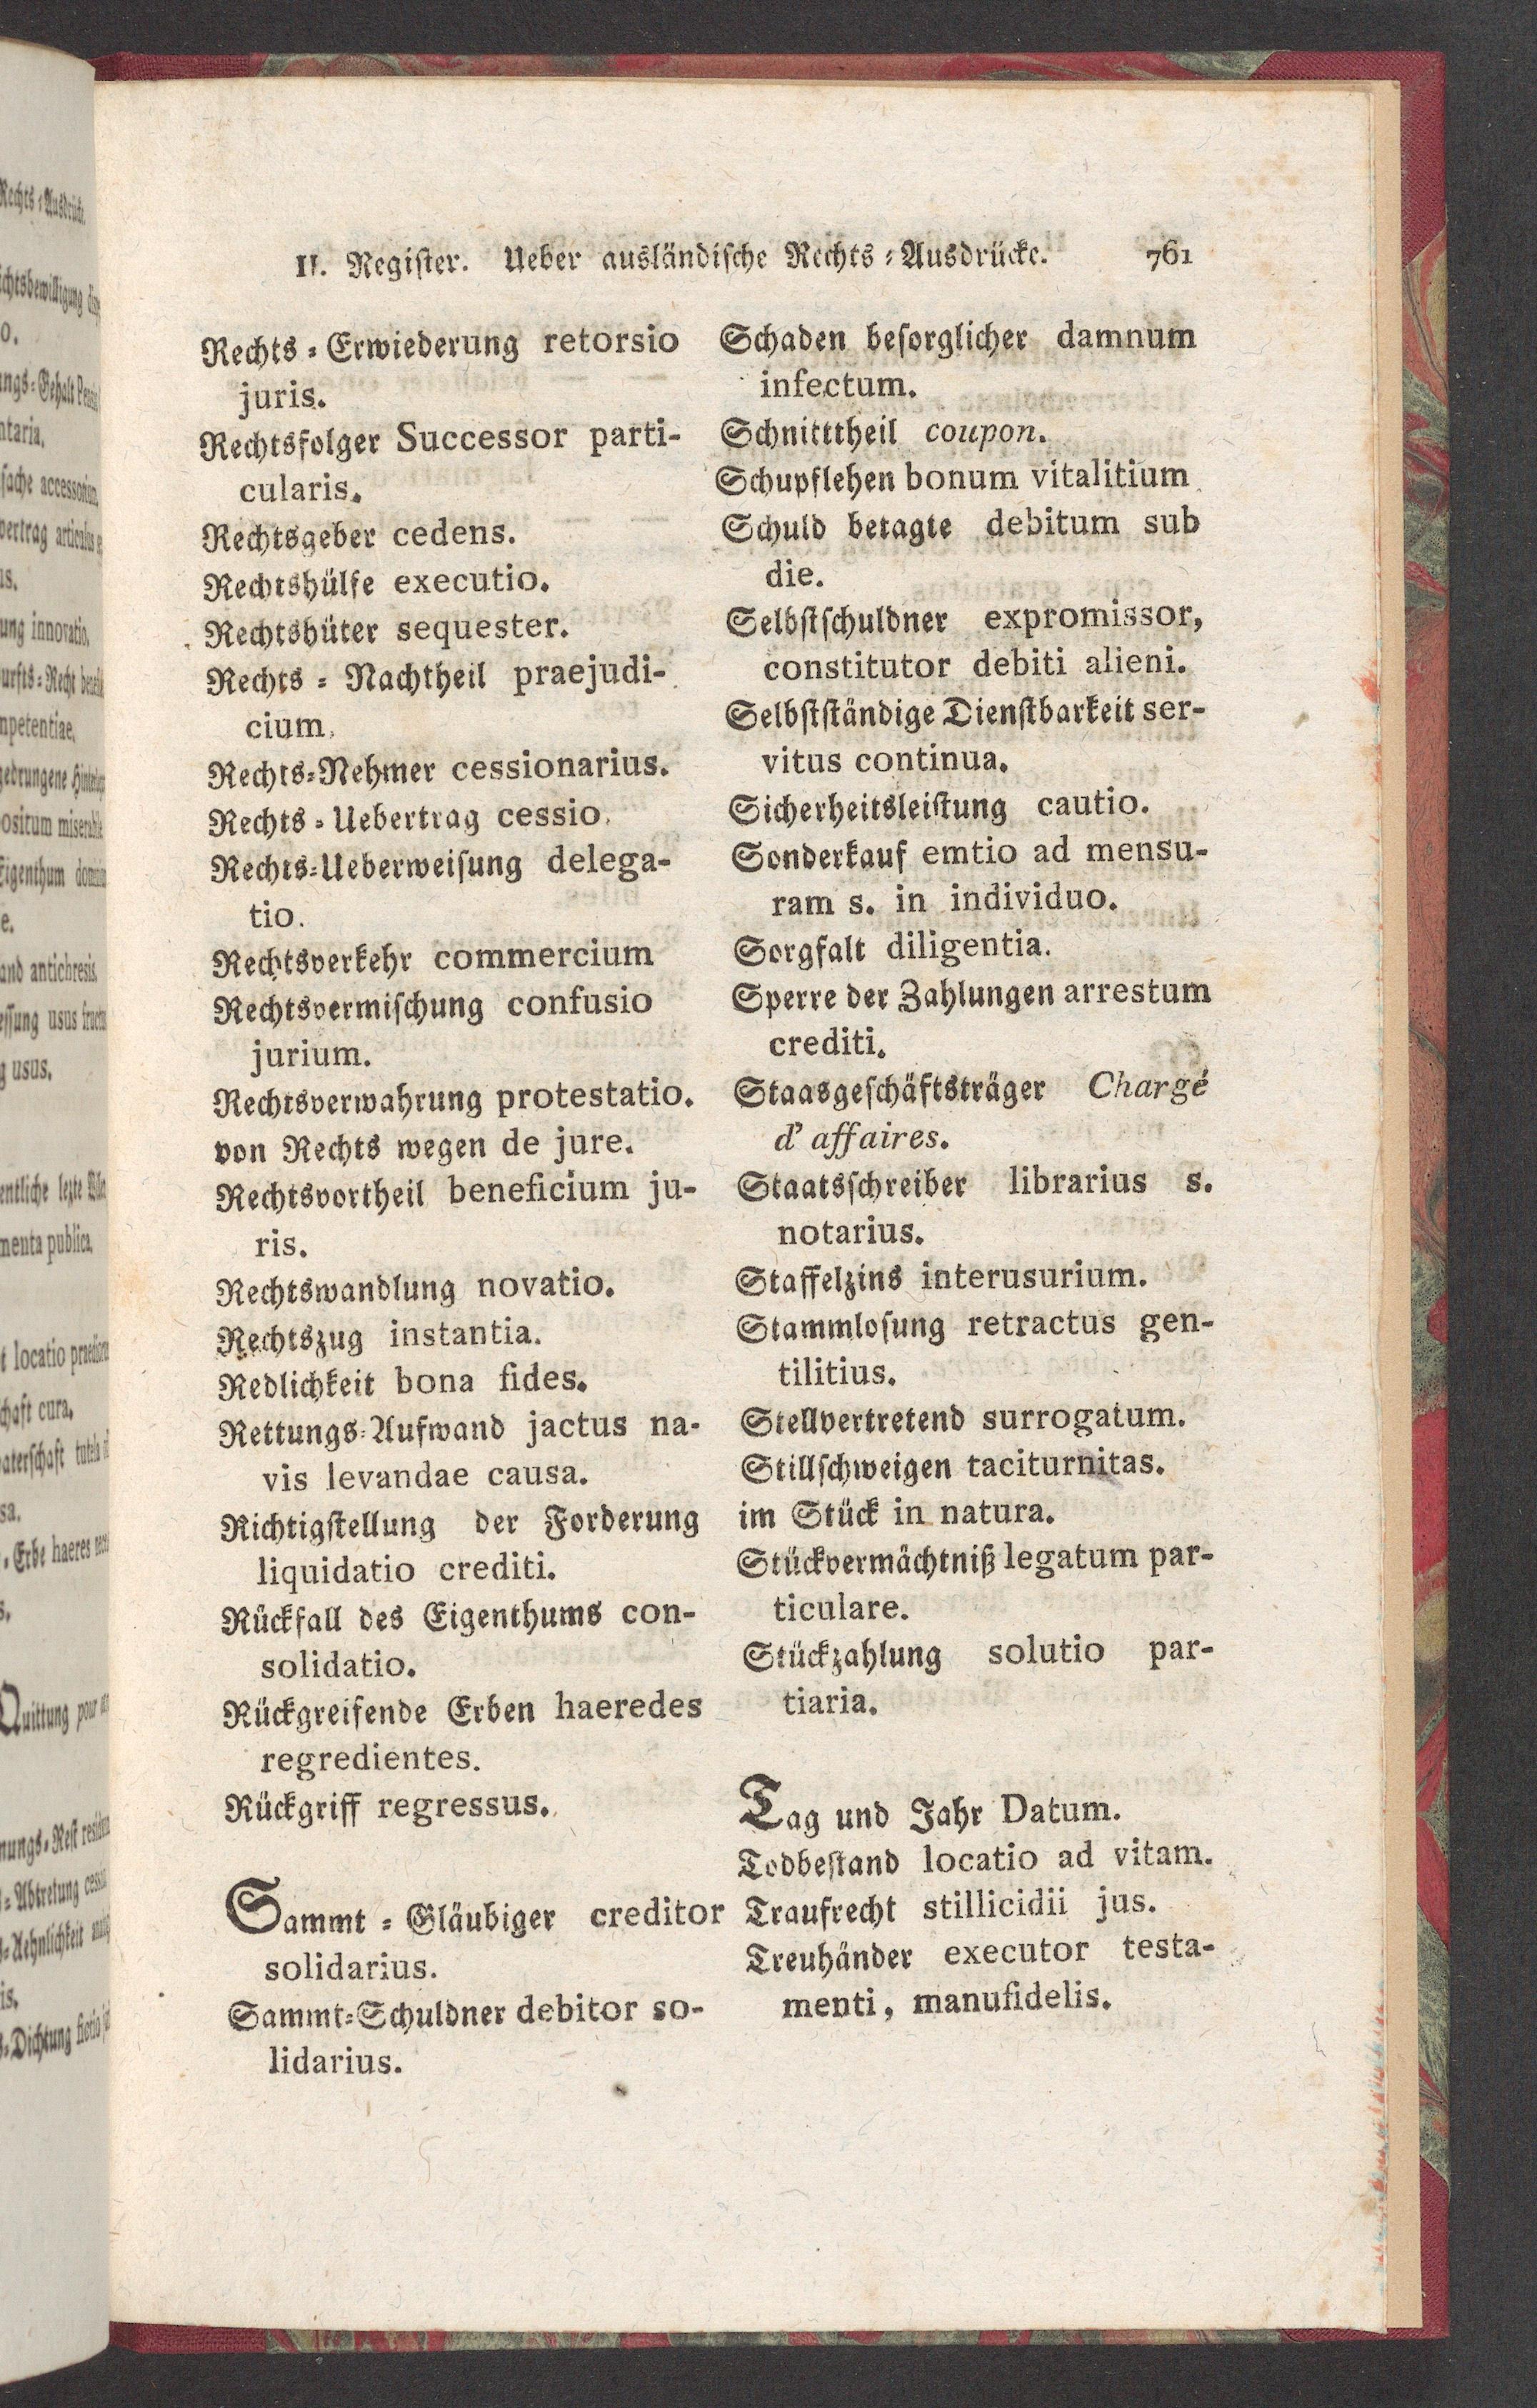 II. Register. Ueber ausländische Rechts-Ausdrücke. 761
Rechts-Erwiederung retorsio
juris.
Rechtsfolger Successor parti-
cularis.
Rechtsgeber cedens.
Rechtshülfe executio.
Rechtshüter sequester.
Rechts-Nachtheil praejudi-
cium.
Rechts-Nehmer cessionarius.
Rechts-Uebertrag cessio.
Rechts-Ueberweisung delega-
tio.
Rechtsverkehr commercium
Rechtsvermischung confusio
jurium.
Rechtsverwahrung protestatio.
von Rechts wegen de jure.
Rechtsvortheil beneficium ju-
ris.
Rechtswandlung novatio.
Rechtszug instantia.
Redlichkeit bona fides.
Rettungs-Aufwand jactus na-
vis levandae causa.
Richtigstellung der Forderung
liquidatio crediti.
Rückfall des Eigenthums con-
solidatio.
Rückgreifende Erben haeredes
regredientes.
Rückgriff regressus.
Sammt-Gläubiger creditor
solidarius.
Sammt-Schuldner debitor so-
lidarius.
Schaden besorglicher damnum
infectum.
Schnitttheil coupon.
Schupflehen bonum vitalitium
Schuld betagte debitum sub
die.
Selbstschuldner expromissor,
constitutor debiti alieni.
Selbstständige Dienstbarkeit ser-
vitus continua.
Sicherheitsleistung cautio.
Sonderkauf emtio ad mensu-
ram s. in individuo.
Sorgfalt diligentia.
Sperre der Zahlungen arrestum
crediti.
Staasgeschäftsträger Chargé
d'affaires.
Staatsschreiber librarius s.
notarius.
Staffelzins interusurium.
Stammlosung retractus gen-
tilitius.
Stellvertretend surrogatum.
Stillschweigen taciturnitas.
im Stück in natura.
Stückvermächtniß legatum par-
ticulare.
Stückzahlung solutio par-
tiaria.
Tag und Jahr Datum.
Todbestand locatio ad vitam.
Traufrecht stillicidii jus.
Treuhänder executor testa-
menti, manufidelis.